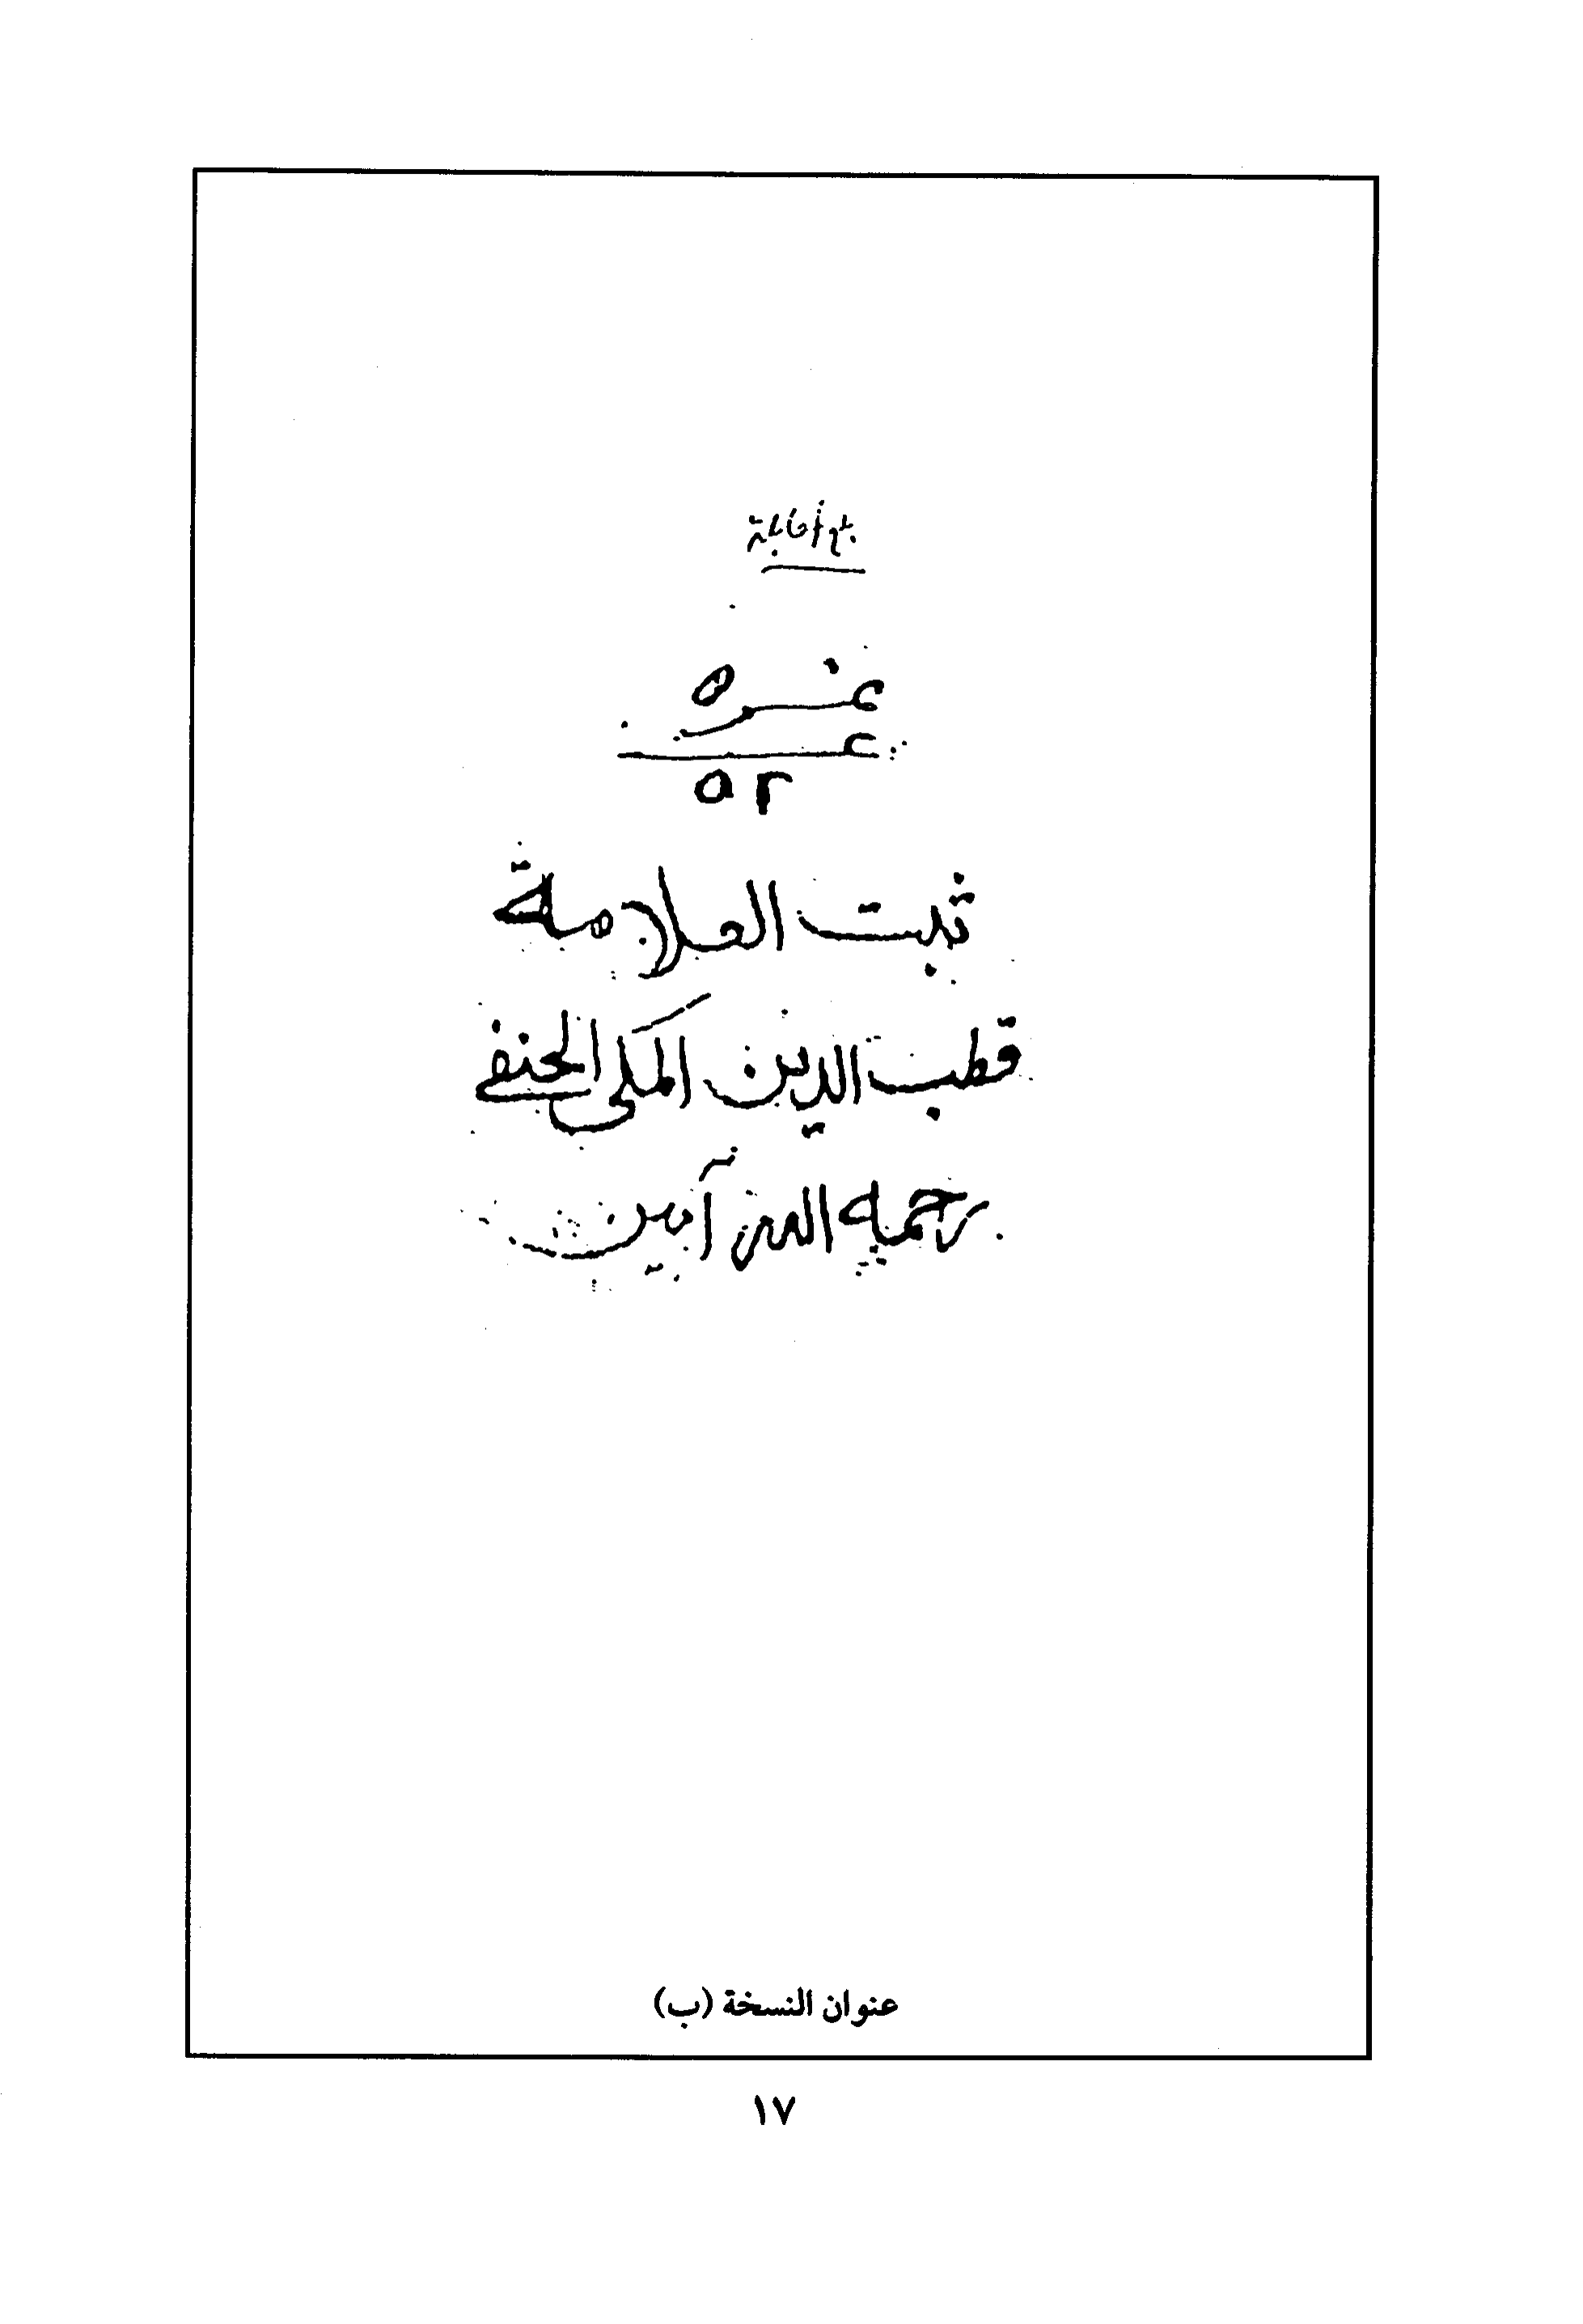 نمره
٥٢
ثبت العلامة
قطب الدين المكي الحنفي
رحمه الله آمين
عنوان النسخة (ب)
١٧